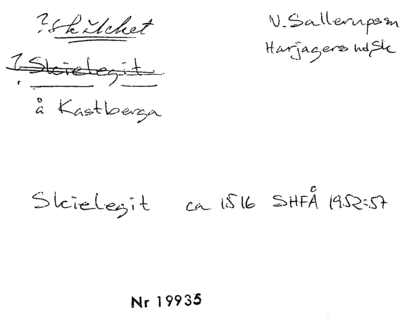 ? Skülchet
V. Sallerups sn
Harjagers hd, Sk
? Skielegit
å Kastberga
Skielegit ca 1516 SHFÅ 1952:57
Nr 19935